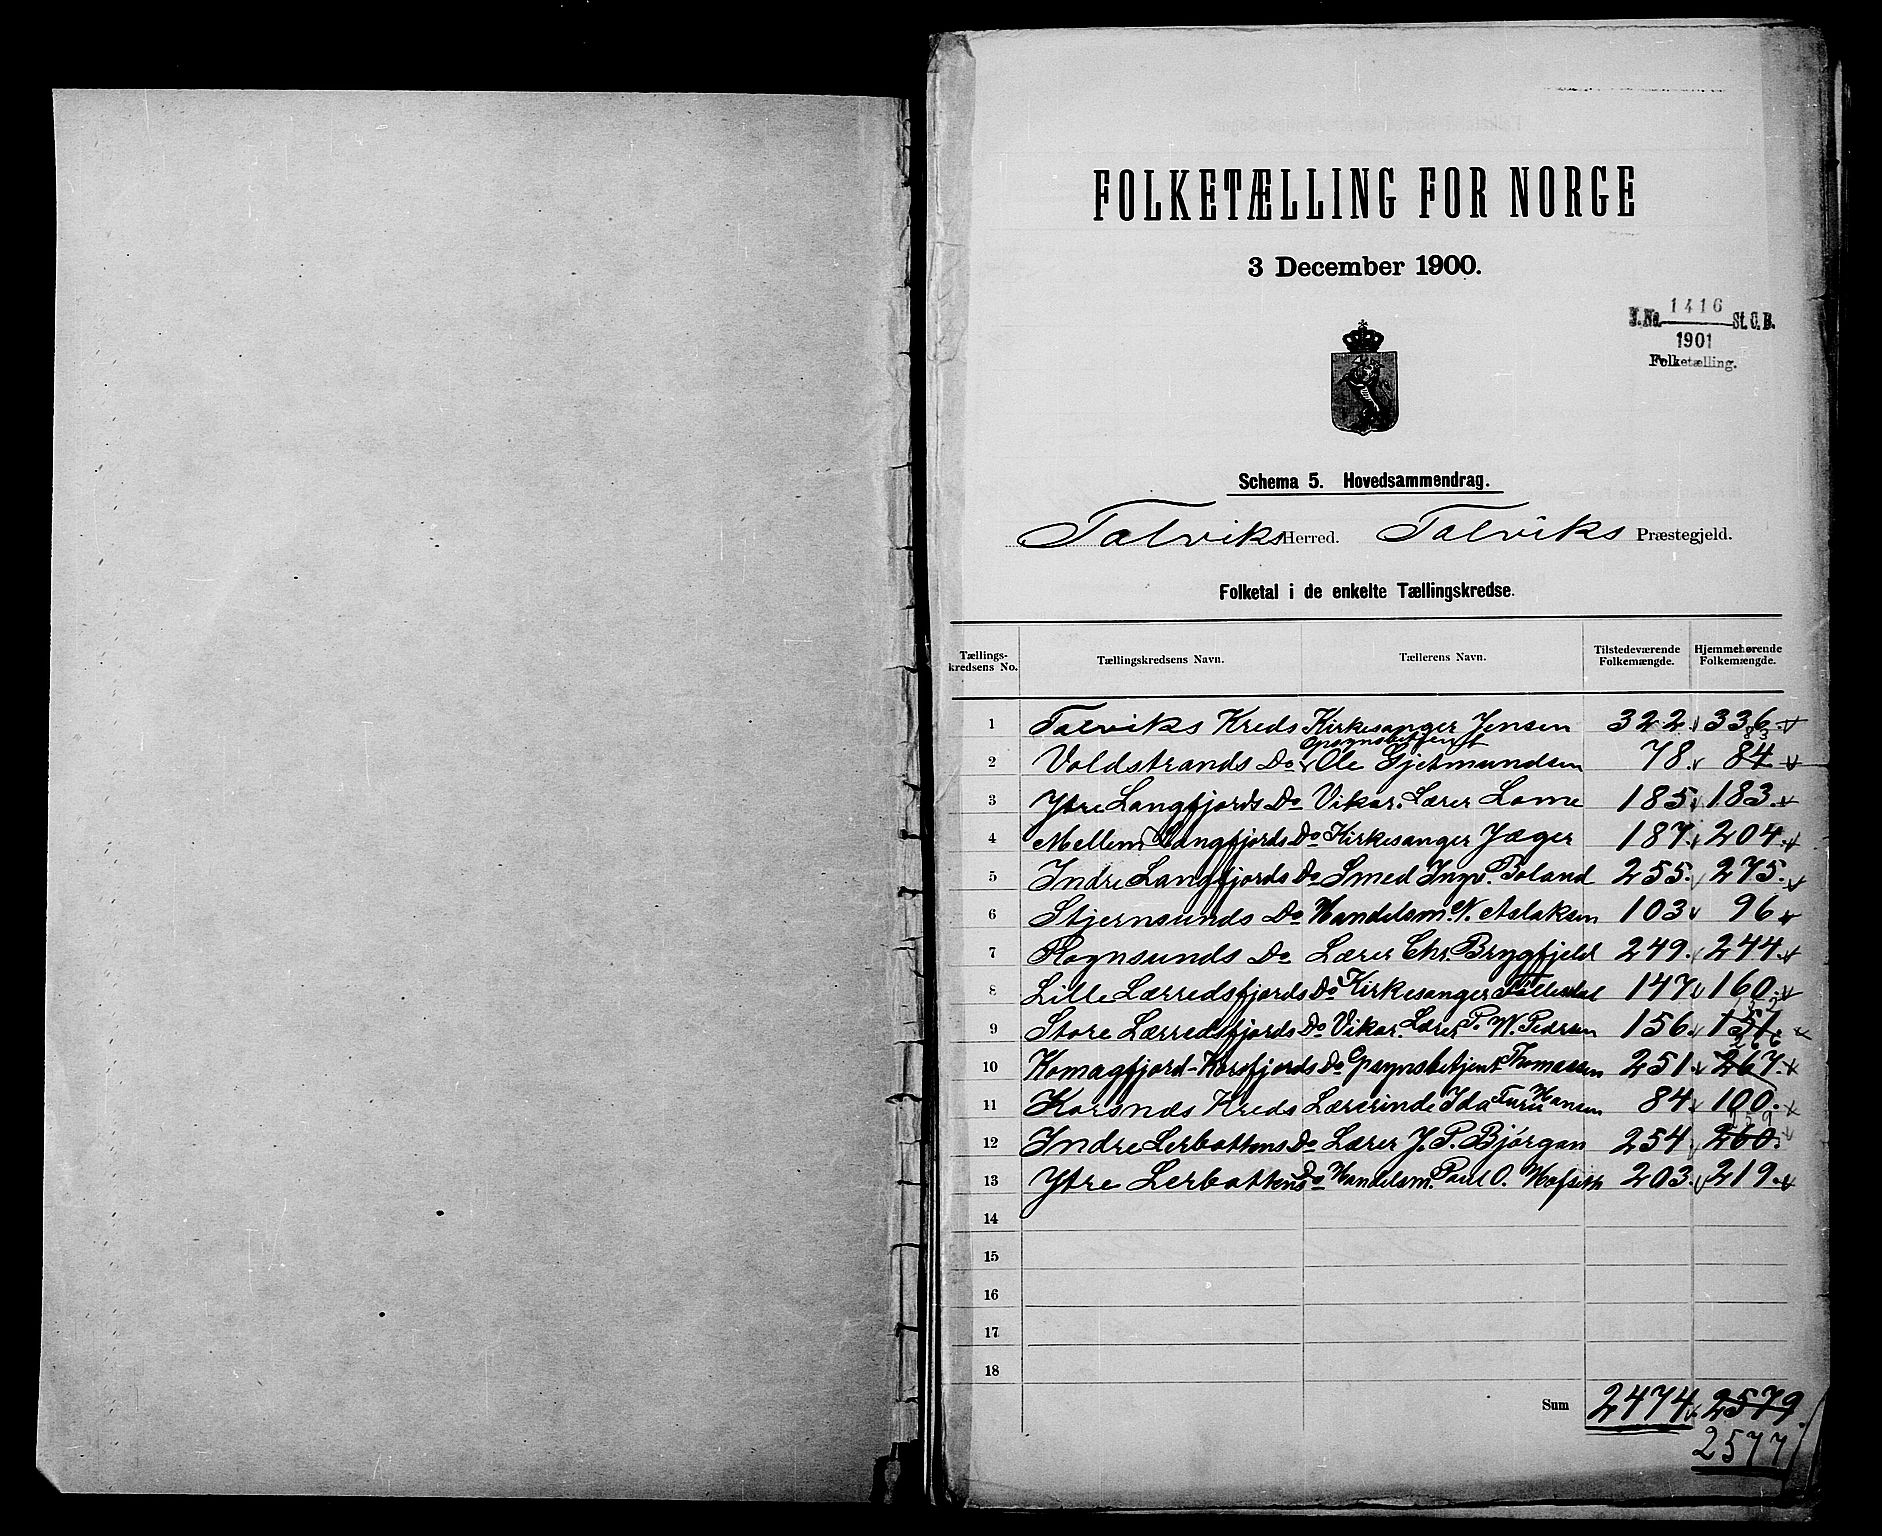 FOLKETÆLLING FOR NORGE
3 December 1900.
J.No. 1416 St. C. B.
1901
Folketælling.
Schema 5. Hovedsammendrag.
Talviks Herred. Talviks Præstegjeld.
Folketal i de enkelte Tællingskredse.
Tællings-kredsens No. Tællingskredsens Navn. Tællerens Navn. Tilstedeværende Folkemængde. Hjemmehørende Folkemængde.
1 Talviks Kreds Kirkesanger Jensen 322 336
2 Voldstrands Do Opsynsbetjent Ole Gjetmundsen 78 84 83
3 Ytre Langfjords Do Vikar. Lærer Lome 185 183
4 Mellem Langfjords Do Kirkesanger Jæger 187 204
5 Indre Langfjords Do Smed Ingv. Toland 255 275
6 Stjernsunds Do Handelsm. N. Aslaksen 103 96
7 Rognsunds Do Lærer Chr. Brygfjeld 249 244
8 Lille Lærredsfjords Do Kirkesanger Follesdal 147 160
9 Store Lærredsfjords Do Vikar. Lærer P. W. Pedersen 156 151 152
10 Komagfjord-Korsfjords Do Opsynsbetjent Thomassen 251 267 266
11 Korsnæs Kreds Lærerinde Ida Hansen 84 100
12 Indre Lerbottens Do Lærer J. P. Bjørgan 254 260 259
13 Ytre Lerbottens Do Handelsm. Paul O. Hofseth 203 219
14
15
16
17
18
Sum 2474 2579
2577